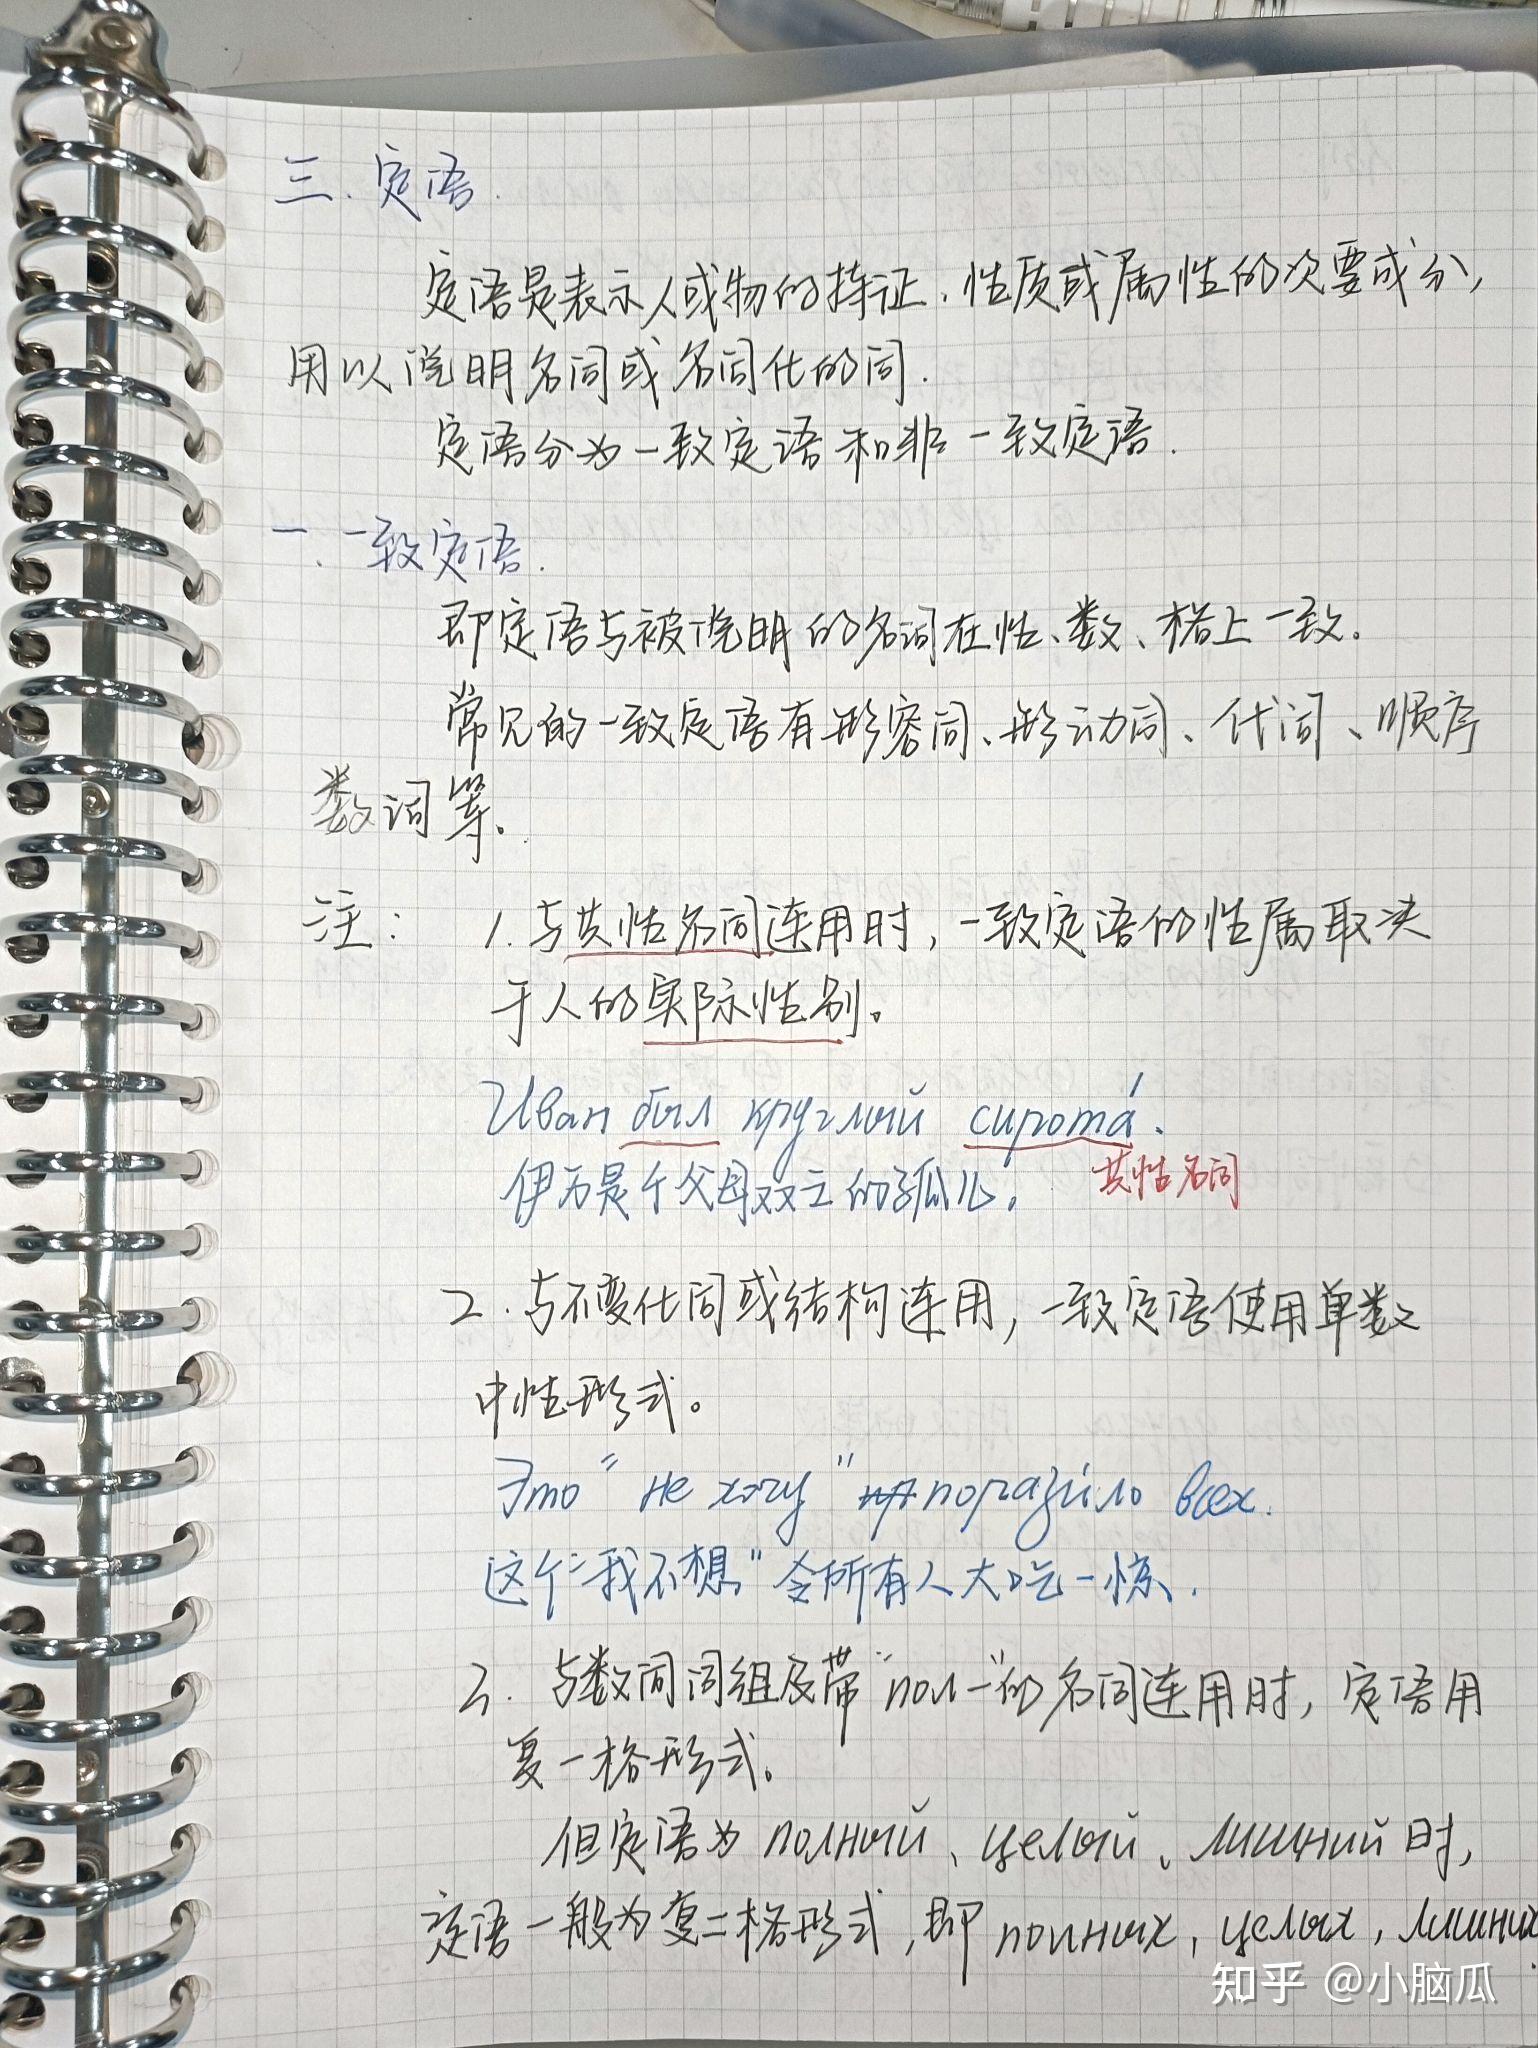 三. 定语.
定语是表示人或物的特征、性质或属性的次要成分,
用以说明名词或名词化的词.
定语分为一致定语和非一致定语.
一. 一致定语.
即定语与被说明的名词在性、数、格上一致.
常见的一致定语有形容词、形动词、代词、顺序
数词等.
注: 1. 与共性名词连用时, 一致定语的性属取决
于人的实际性别。
Иван был круглый сирота́.
伊万是个父母双亡的孤儿.
共性名词
2. 与不变化词或结构连用, 一致定语使用单数
中性形式。
Это "не хочу" порази́ло всех.
这个"我不想"令所有人大吃一惊.
3. 与数词词组及带"пол-"的名词连用时, 定语用
复一格形式。
但定语为 полный、целый、лишний 时,
定语一般为复二格形式, 即 полных, целых, лишних.
知乎 @小脑瓜